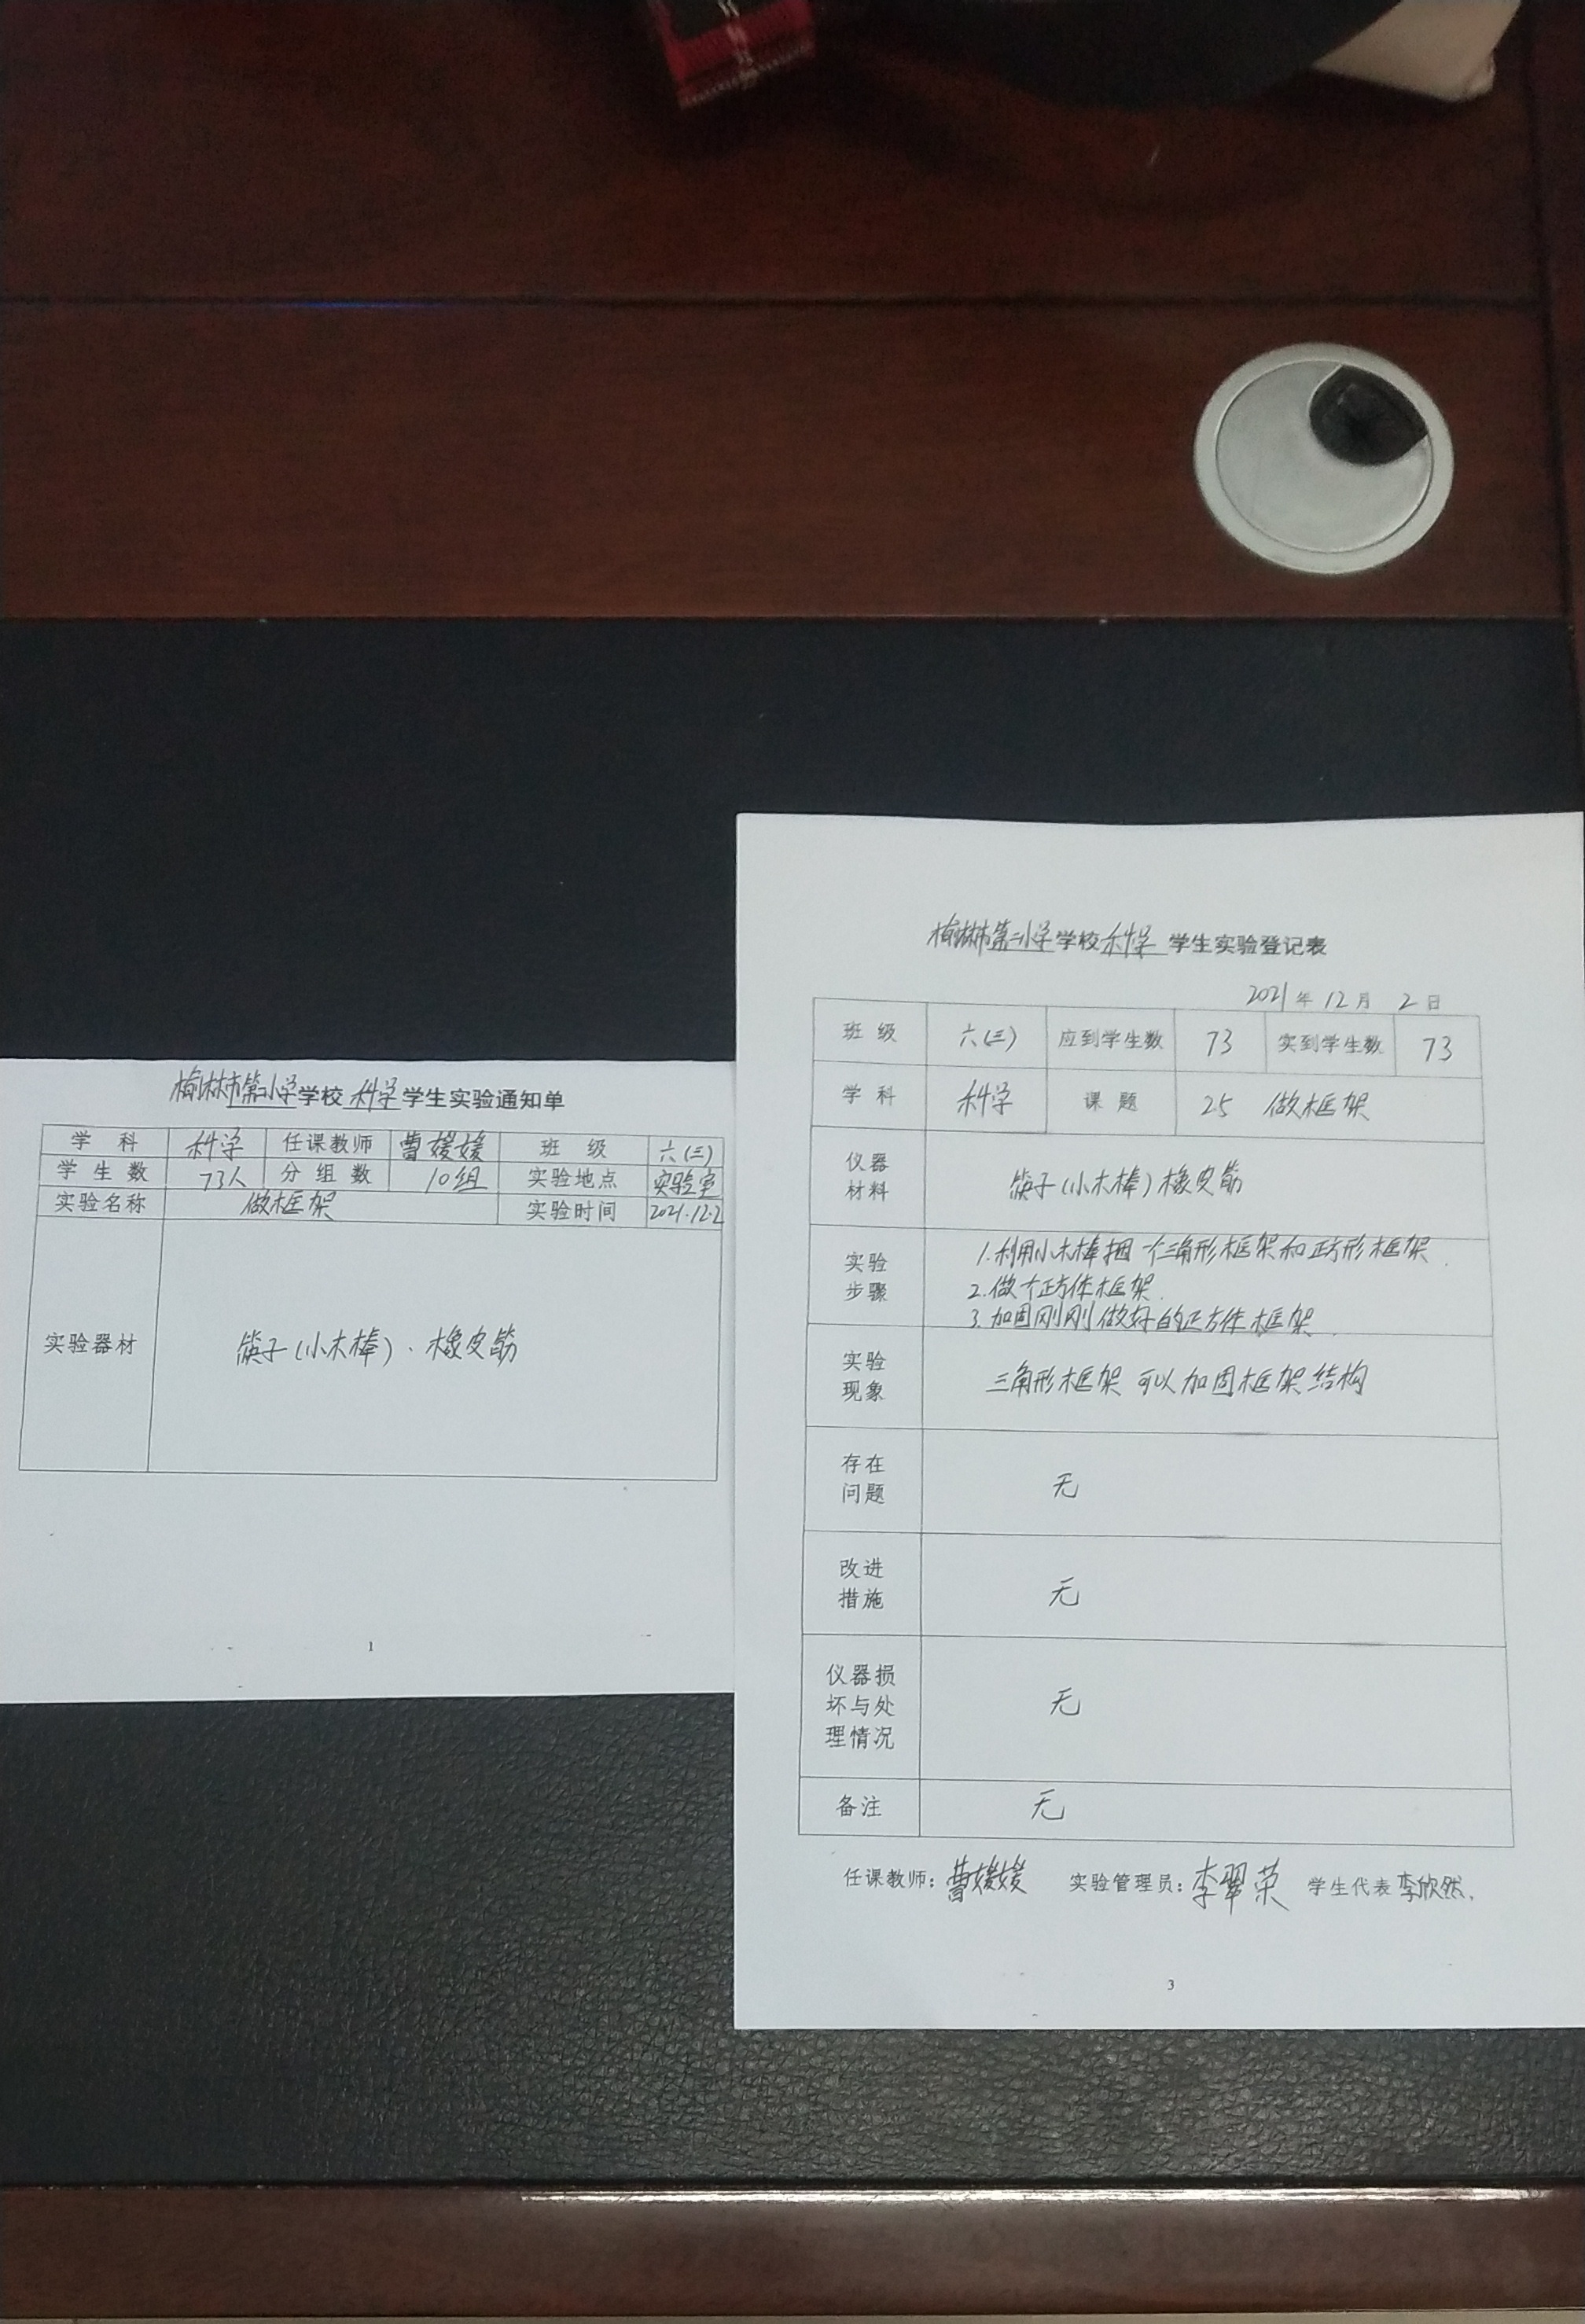 榆林市第二小学学校科学学生实验通知单
学 科 科学 任课教师 曹媛媛 班 级 六(三)
学 生 数 73人 分 组 数 10组 实验地点 实验室
实验名称 做框架 实验时间 2021.12.2
实验器材 筷子(小木棒)、橡皮筋
1
榆林市第二小学学校科学 学生实验登记表
2021 年 12 月 2 日
班 级 六(三) 应到学生数 73 实到学生数 73
学 科 科学 课 题 25 做框架
仪器
材料
筷子(小木棒)橡皮筋
实验
步骤
1.利用小木棒捆一个三角形框架和正方形框架.
2.做个正方体框架.
3.加固刚刚做好的正方体框架.
实验
现象
三角形框架可以加固框架结构
存在
问题
无
改进
措施
无
仪器损
坏与处
理情况
无
备注 无
任课教师:曹媛媛 实验管理员:李翠荣 学生代表 李欣然.
3